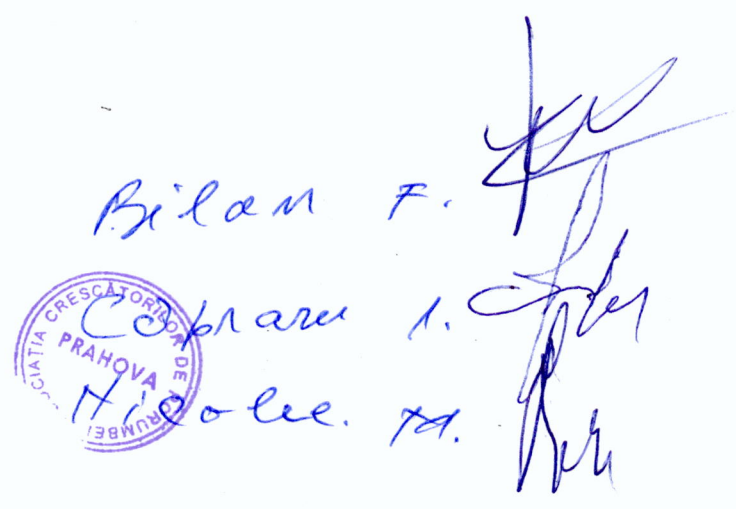 Bilan F.
Căpraru I.
Nicolae. M.
CIAȚIA CRESCĂTORILOR DE PORUMBEI
PRAHOVA